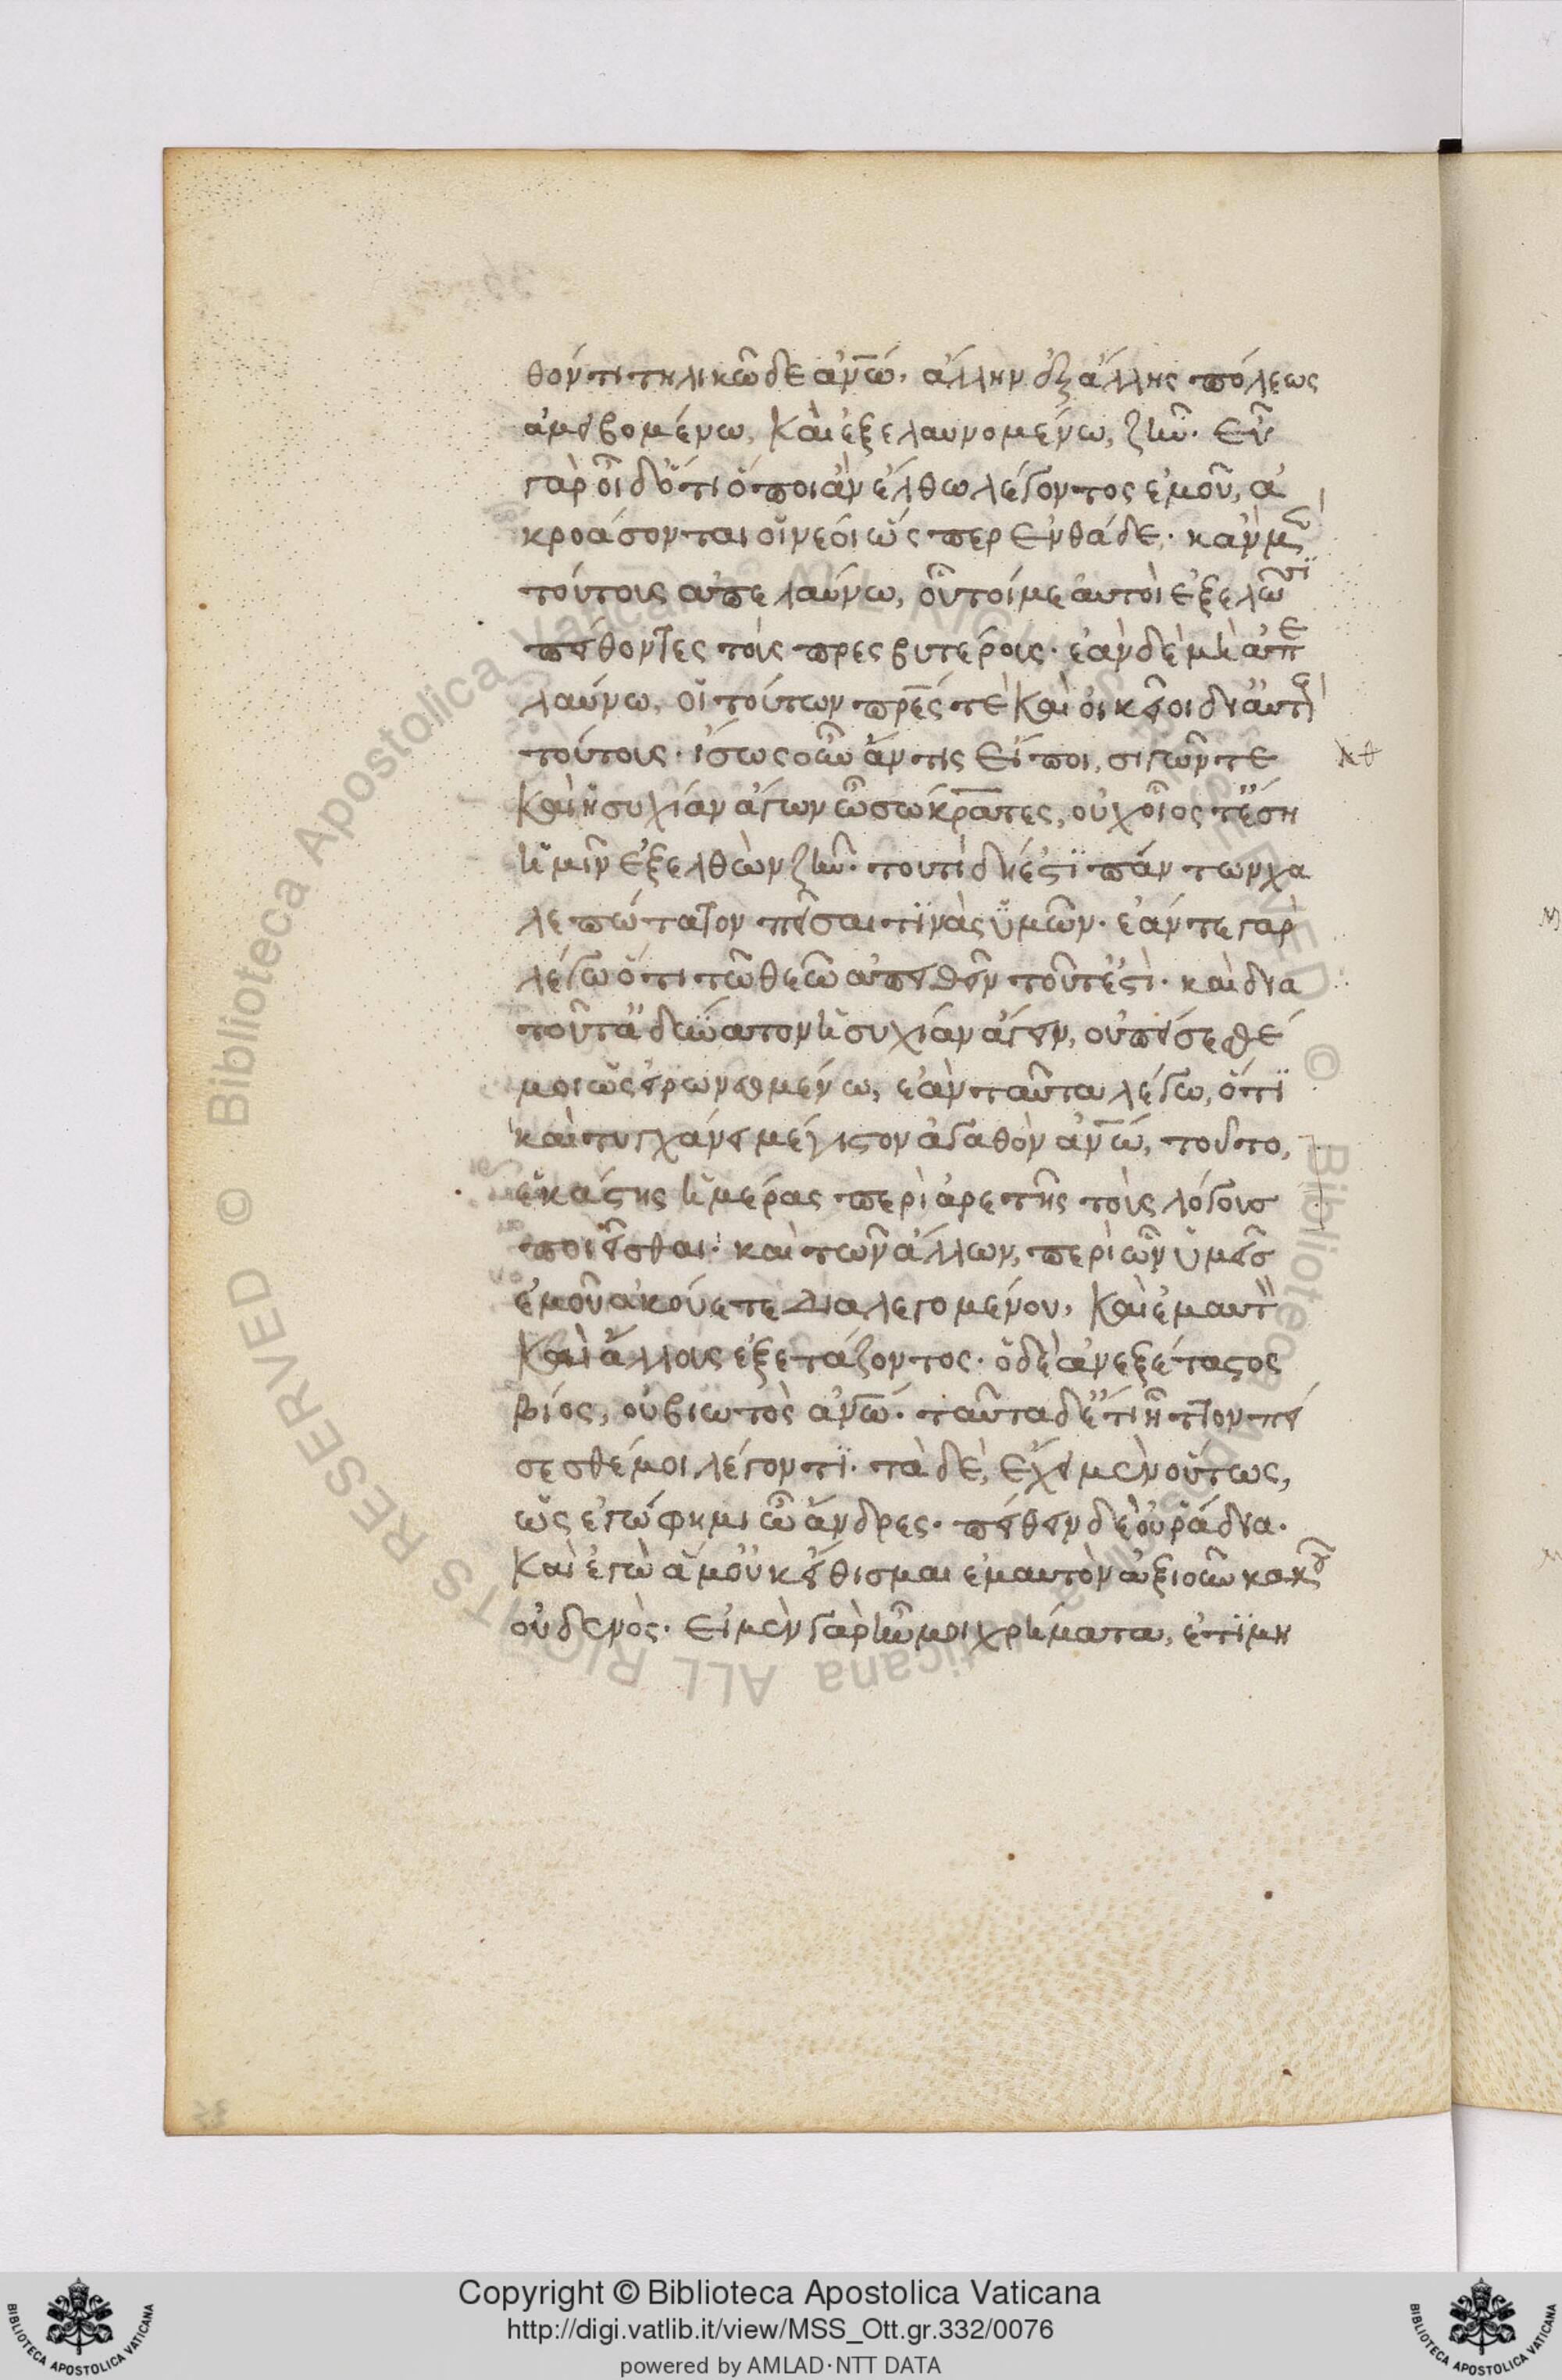 θόντι τηλικῶδε ἀν̅ώ. ἄλλην ἐξ ἄλλης πόλεως
ἀμειβομένω, καὶ ἐξελαυνομένω, ζῆν. εὖ
γὰρ οἶδ' ὅτι ὅποι ἂν ἔλθω λέγοντος ἐμοῦ, ἀ
κροάσονται οἱ νέοι ὥσπερ ἐνθάδε. κἂν μ̅
τούτους ἀπελαύνω, οὗτοί με αὐτοὶ ἐξελῶσι
πείθοντες τοὺς πρεσβυτέρους. ἐὰν δὲ μὴ ἀπε
λαύνω, οἱ τούτων πρ̅ες τὲ καὶ οἰκεῖοι δι' αὐτοὺς
τούτους. ἴσως οὖν ἄν τις εἴποι, σιγῶν τε
καὶ ἡσυχίαν ἄγων ὦ σώκρατες, οὐχ οἷός τ' ἔση
ἡμῖν ἐξελθὼν ζῆν. τουτὶ δή ἐστι πάντων χα
λεπώτατον πεῖσαι τινὰς ὑμῶν. ἐάν τε γὰρ
λέγω ὅτι τῶ θεῶ ἀπειθεῖν τοῦτ' ἐστὶ. καὶ δια
τοῦτ' ἀδύνατον ἡσυχίαν ἄγειν, οὐ πείσεσθέ
μοι ὡς εἰρωνευομένω, ἐάν τ' αὖ λέγω, ὅτι
καὶ τυγχάνει μέγιστον ἀγαθὸν ἀν̅ώ, τοῦτο,
ἑκάστης ἡμέρας περὶ ἀρετῆς τοὺς λόγους
ποιεῖσθαι. καὶ τῶν ἄλλων, περὶ ὧν ὑμεῖς
ἐμοῦ ἀκούετε διαλεγομένου, καὶ ἐμαυτὸν
καὶ ἄλλους ἐξετάζοντος. ὁ δὲ ἀνεξέταστος
βίος, οὐ βιωτὸς ἀν̅ώ. ταῦτα δ' ἔτι ἧττον πεί
σεσθέ μοι λέγοντι. τὰ δὲ, ἔχει μὲν οὕτως,
ὥς ἐγώ φημι ὦ ἄνδρες. πείθειν δὲ οὐ ῥάδια.
καὶ ἐγὼ ἅμ' οὐκ εἴθισμαι ἐμαυτὸν ἀξιοῦν κακοῦ
οὐδενὸς. εἰ μὲν γὰρ ἦν μοι χρήματα, ἐτιμη
Copyright © Biblioteca Apostolica Vaticana
http://digi.vatlib.it/view/MSS_Ott.gr.332/0076
powered by AMLAD·NTT DATA